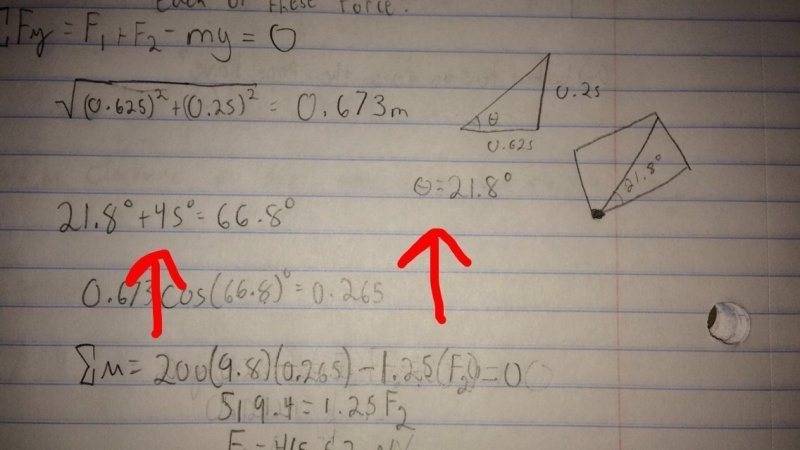 Each of these Force.
ΣFy = F1 + F2 - my = 0
√(0.625)² + (0.25)² = 0.673m
0.25
θ
0.625
21.8°
θ = 21.8°
21.8° + 45° = 66.8°
0.673 cos(66.8)° = 0.265
ΣM = 200(9.8)(0.265) - 1.25(F2) = 0
519.4 = 1.25 F2